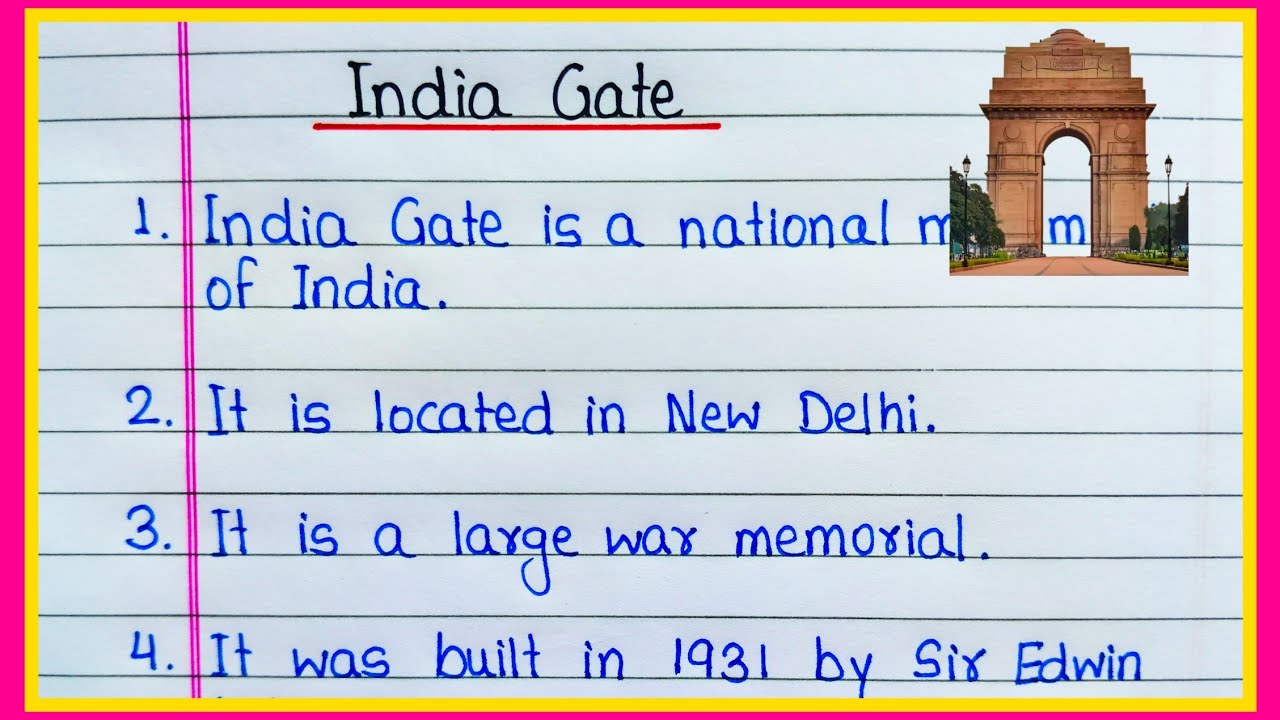 India Gate
1. India Gate is a national
of India.
2. It is located in New Delhi.
3. It is a large war memorial.
4. It was built in 1931 by Sir Edwin